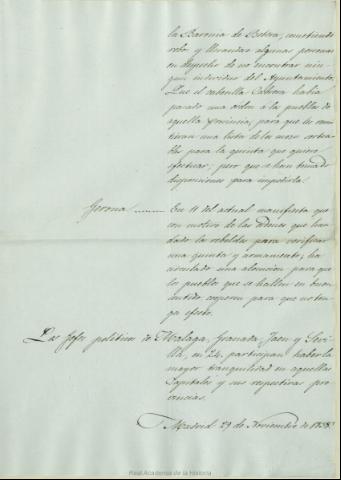 la Baronia de Bétera, cometiendo
robos y llevandose algunas personas
en despecho de no encontrar nin-
gun individuo del Ayuntamiento.
Que el cabecilla Cabrera habia
pasado una orden á los pueblos de
aquella provincia, para que le remi-
tieran una lista de los mozos sortea-
bles para la quinta que quiere
efectuar; pero que se han tomado
disposiciones para impedirla.
Gerona ...... En 11 del actual manifiesta que
con motivo de las ordenes que han
dado los rebeldes para verificar
una quinta y armamento, ha
circulado una alocucion para que
los pueblos que se hallen en buen
sentido cooperen para que no ten-
ga efecto.
Los Jefes politicos de Malaga, Granada, Jaen y Sevi-
lla, en 24, participan haber la
mayor tranquilidad en aquellas
Capitales y sus respectivas pro-
vincias.
Madrid 29 de Noviembre de 1838.
Real Academia de la Historia